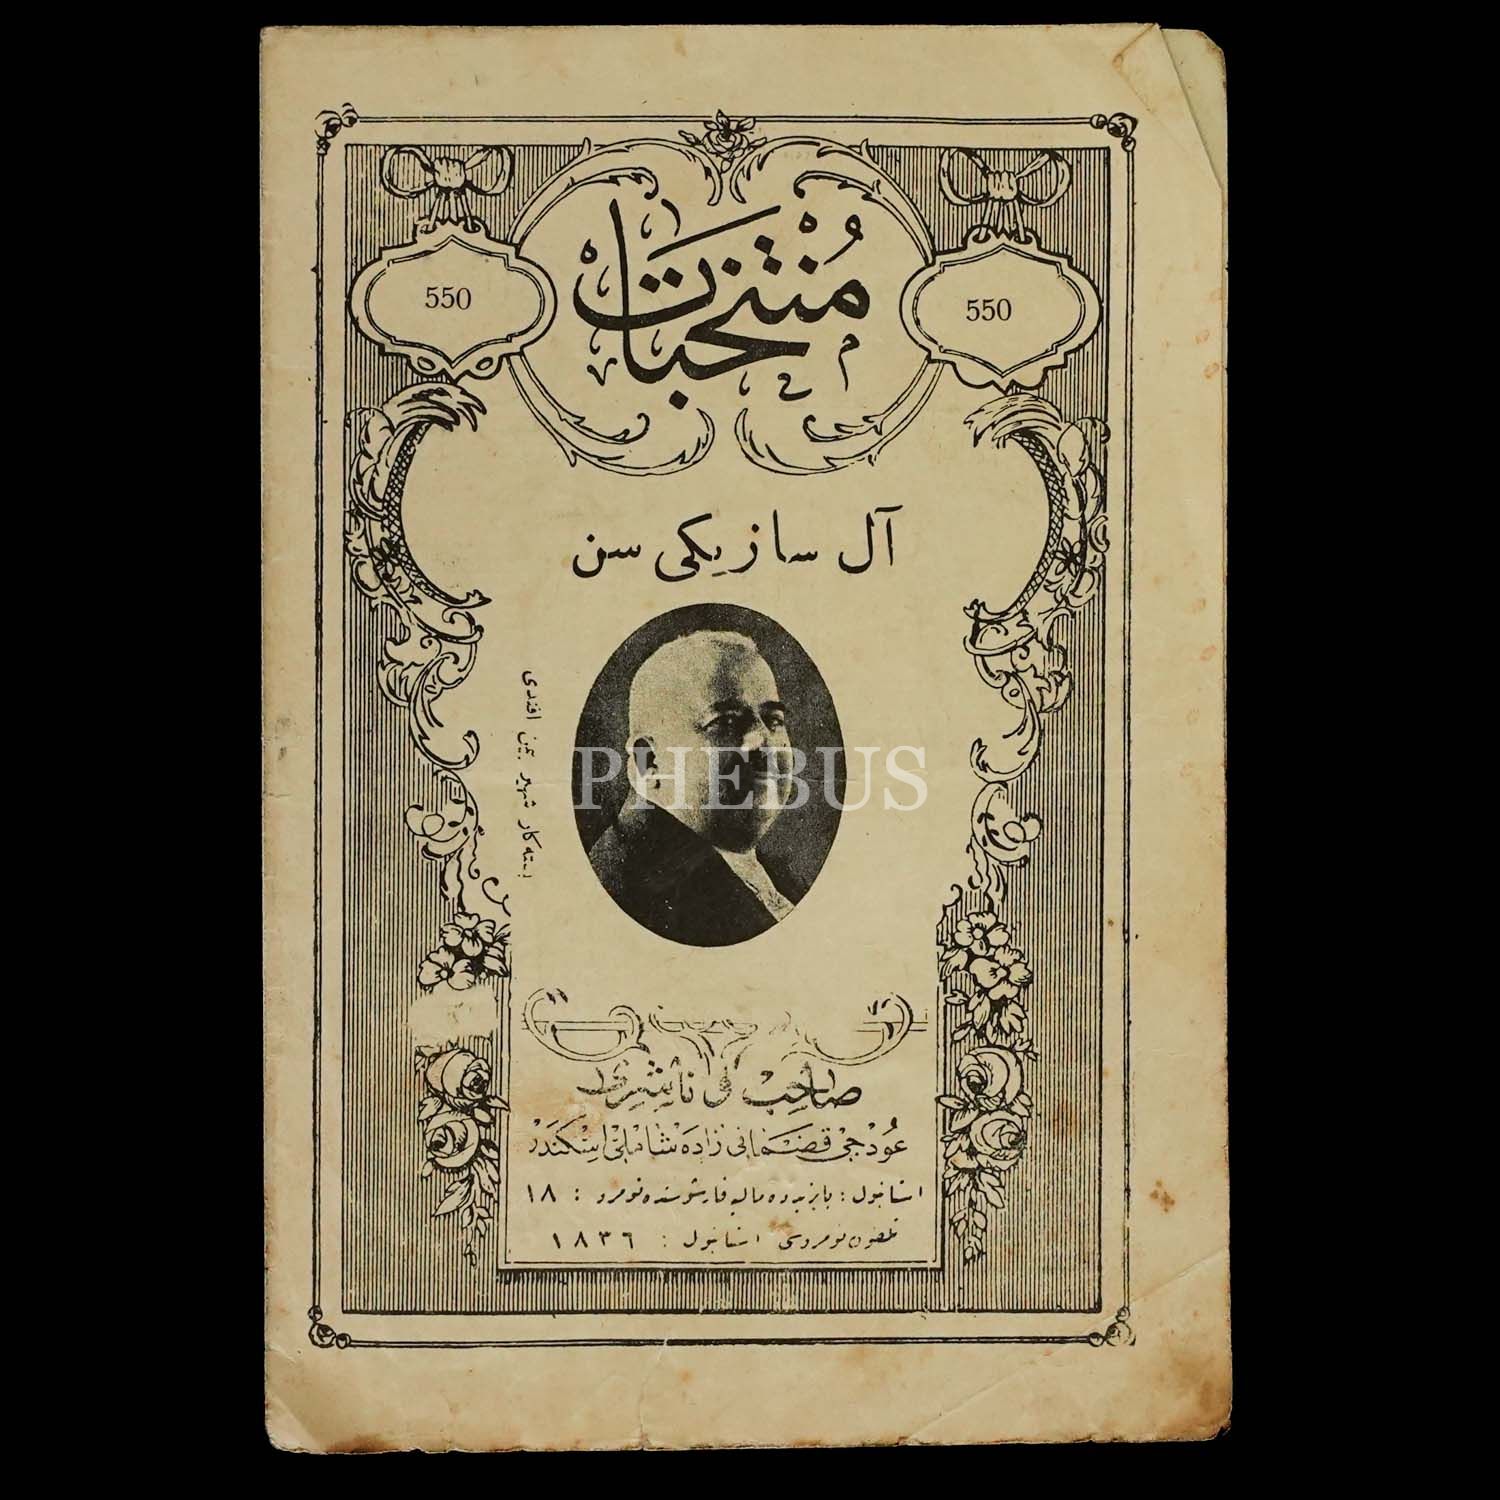 550
مُنْتَخَبَات
550
آل سازیکی سن
بسته کار شهیر بیمن افندی
PHEBUS
صَاحِبْ و نَاشِرِی
عُودجی قضمانی زَادَه شاملی اسکندر
استانبول : بایزیدده مالیه قارشوسنده نومرو : ١٨
تلفون نومروسی استانبول : ١٨٣٦